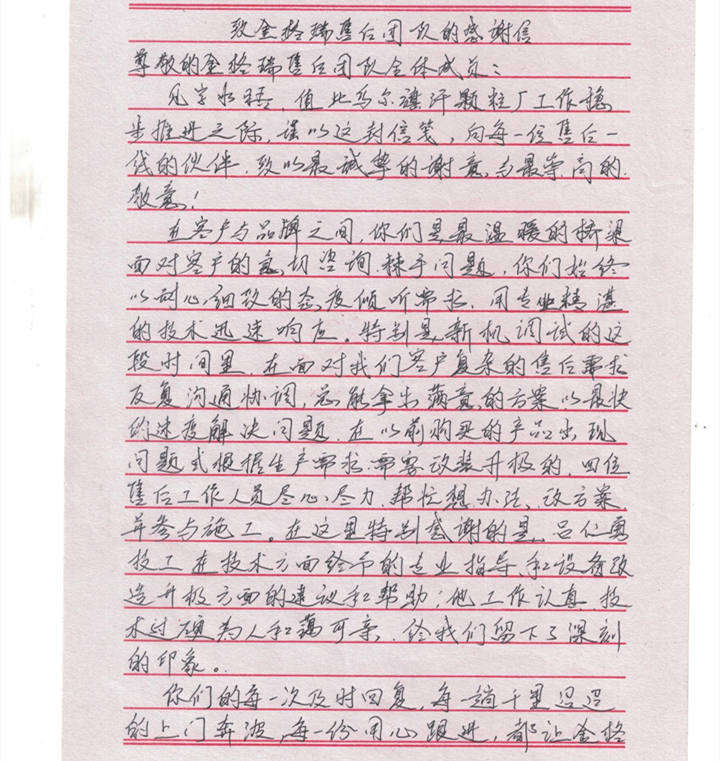 致金格瑞售后团队的感谢信
尊敬的金格瑞售后团队全体成员：
见字如晤，值此乌尔旗汗颗粒厂工作稳
步推进之际，谨以这封信笺，向每一位售后一
线的伙伴，致以最诚挚的谢意与最崇高的
敬意！
在客户与品牌之间，你们是最温暖的桥梁
面对客户的急切咨询、棘手问题，你们始终
以耐心细致的态度倾听需求，用专业精湛
的技术迅速响应。特别是新机调试的这
段时间里，在面对我们客户复杂的售后需求
反复沟通协调，总能拿出满意的方案以最快
的速度解决问题，在以前购买的产品出现
问题或根据生产需求需要改装升极的，四位
售后工作人员尽心尽力，帮忙想办法、改方案、
并参与施工。在这里特别感谢的是，吕仁勇
技工在技术方面给予的专业指导和设备改
造升极方面的建议和帮助；他工作认真，技
术过硬为人和蔼可亲，给我们留下了深刻
的印象。
你们的每一次及时回复，每一趟千里迢迢
的上门奔波，每一份用心跟进，都让金格